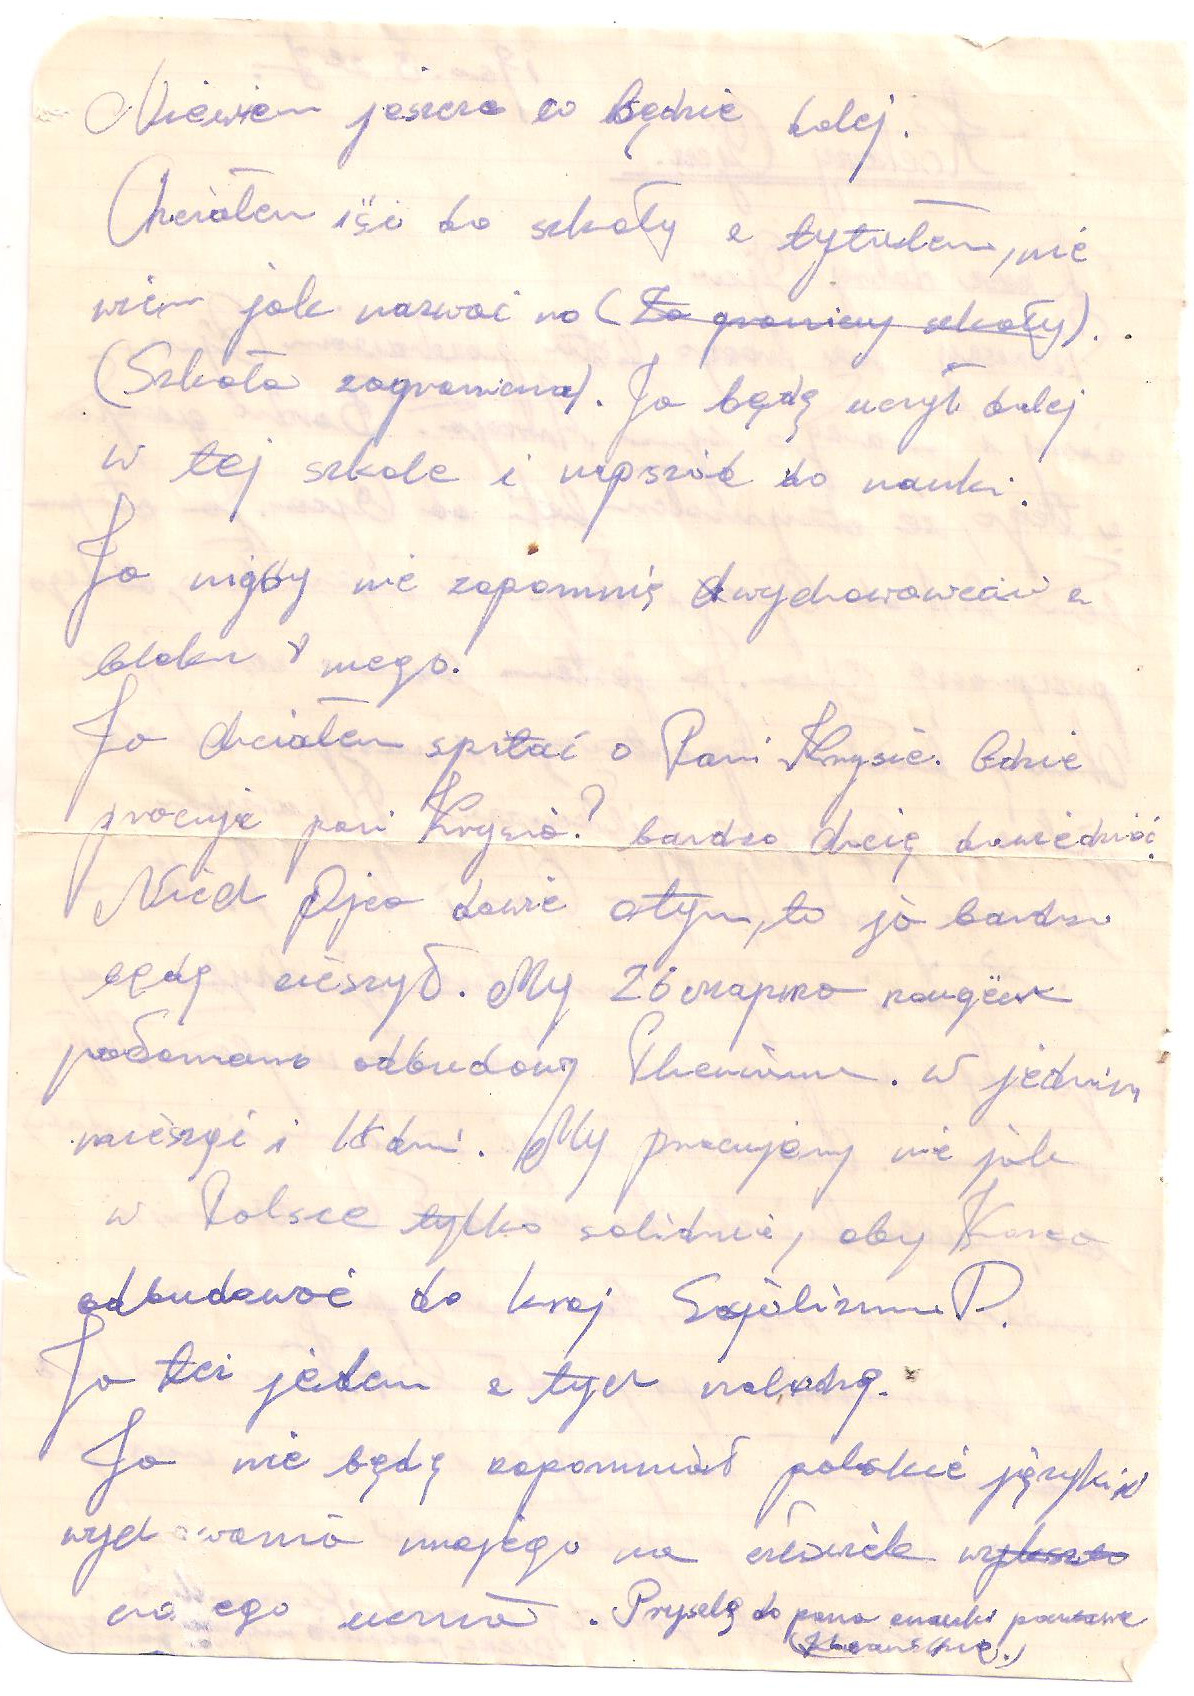 Niewiem jeszcze co będzie dalej.
Chciałem iść do szkoły z tytułem, nie
wiem jak nazwać no (Za granicy szkoły).
(Szkoła zagraniczna). Ja będę uczył dalej
w tej szkole i napszód do nauki.
Ja nigdy nie zapomnię wychowawców z
bloku mego.
Ja chciałem spitać o Pani Krysie. Gdzie
pracuje pani Krysia? bardzo chcię dowiedzieć.
Niech Ojca dowie otym, to ja bardzo
będę cieszył. My 26 marca
odbudowy Phenianu. w jednim
miesięci i dni. My pracujemy nie jak
w Polsce tylko solidnie, aby Korea
odbudować do kraj Socjalizmu P.
Ja też jeden z tych należę.
Ja nie będę zapomniał polskie języki i
wychowania mojego na człowiek
na ego ucznia. Pryselę do pana znaczki pocztowe